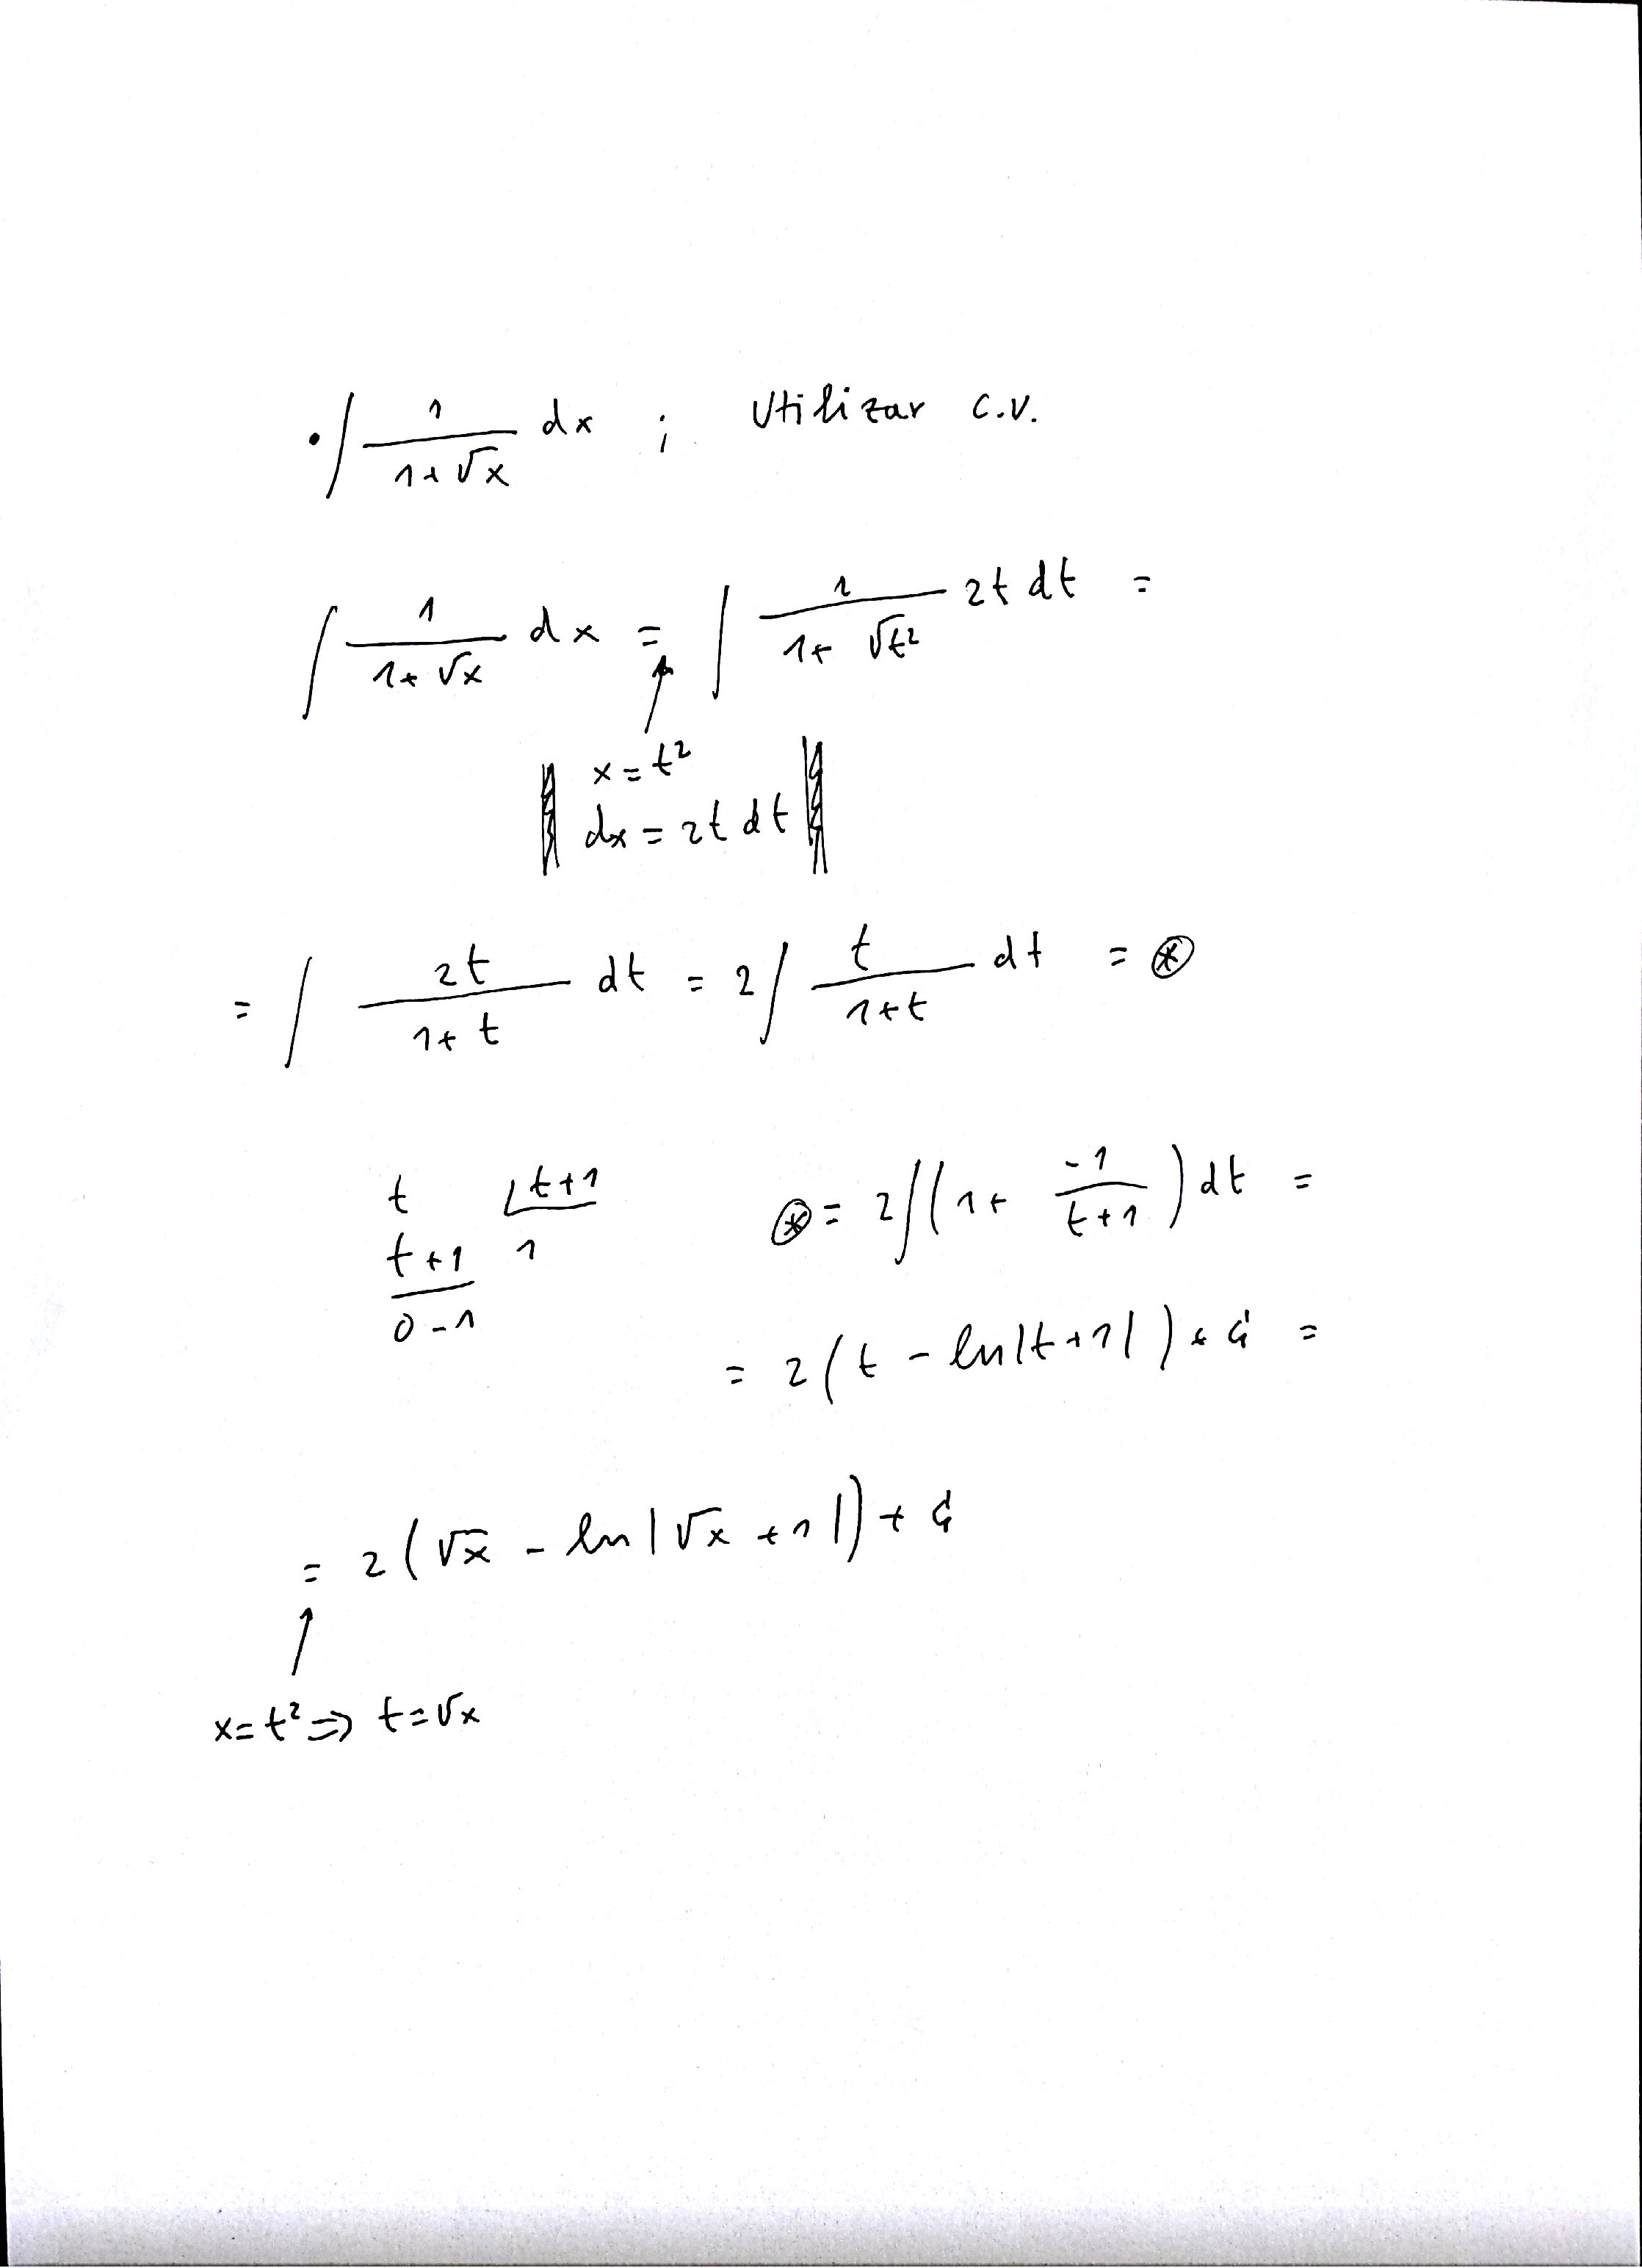 • ∫ 1/(1+√x) dx ; Utilizar c.v.
∫ 1/(1+√x) dx = ∫ 1/(1+√t²) 2t dt =
x=t²
dx = 2t dt
= ∫ 2t/(1+t) dt = 2∫ t/(1+t) dt = ⊛
t ∟t+1
t+1 1
0-1
⊛ = 2∫(1+ -1/(t+1)) dt =
= 2(t - ln|t+1|) + C =
= 2(√x - ln|√x+1|) + C
↑
x=t² ⇒ t=√x